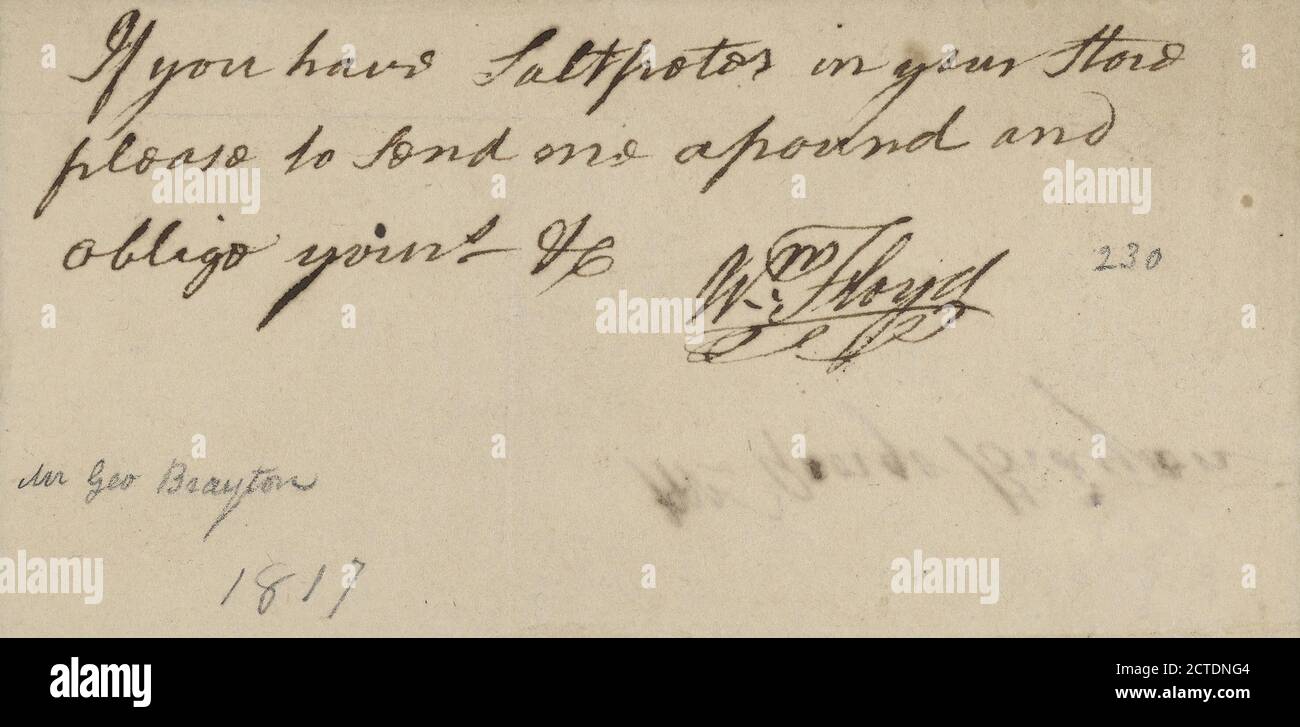 If you have Saltpeter in your Store
please to Send me a pound and
oblige yours &c
Wm Floyd
230
Mr Geo Brayton
1817
alamy
Image ID: 2CTDNG4
www.alamy.com